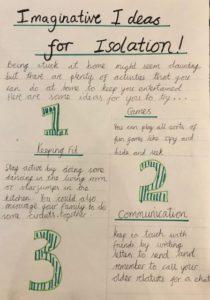 Imaginative Ideas
for Isolation!
Being stuck at home might seem daunting
but there are plenty of activities that you
can do at home to keep you entertained.
Here are some ideas for you to try...
1
Games
You can play all sorts of
fun game like ispy and
hide and seek
Keeping Fit
Stay active by doing some
dancing in the living room
or starjumps in the
kitchen. You could also
encourage your family to do
some circuits together
2
3
Communication
Keep in touch with
friends by writing
letters to send and
remember to call your
older relatives for a chat